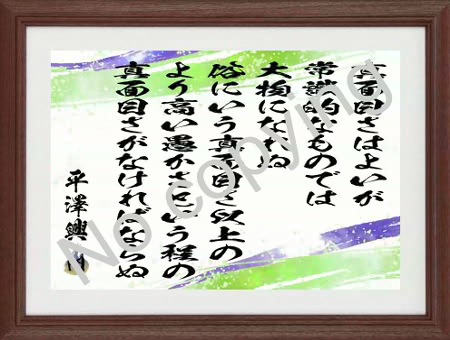 真面目さはよいが
常識的なものでは
大物になれぬ
俗にいう真面目さ以上の
より高い愚かさという程の
真面目さがなければならぬ
平澤興
No copying